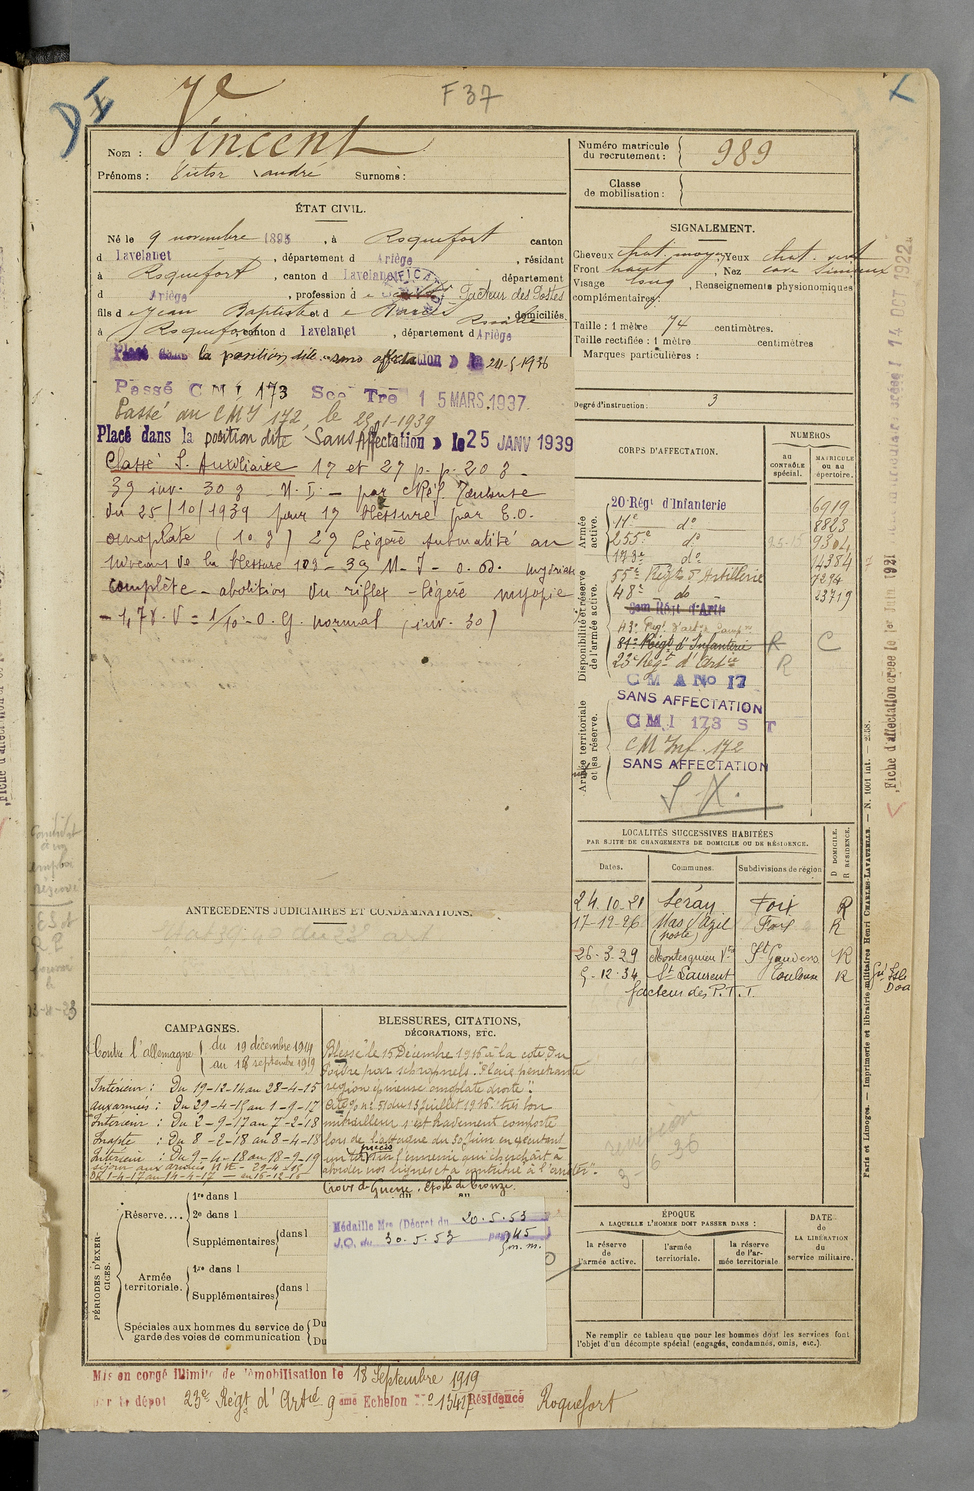 F 37
D I
Nom : Vincent
Prénoms : Victor André Surnoms :
Numéro matricule du recrutement : 989
Classe de mobilisation :
ÉTAT CIVIL.
Né le 9 novembre 1895, à Roquefort canton
d Lavelanet, département d Ariège, résidant
à Roquefort, canton d Lavelanet département
d Ariège, profession d Facteur des Postes
fils d e Jean Baptiste et d e
Rosalie domiciliés
à Roquefort canton d Lavelanet, département d Ariège
Placé dans la position dite sans affectation le 24-5-1936
Passé C M I 173 Son Tre 15 MARS 1937
Passé au CMI 172, le 25-1-1939
Placé dans la position dite Sans Affectation le 25 JANV 1939
Classé S. Auxiliaire 1º et 2º p. p. 20 %
3º inv. 30 % - N. I. - par C Réf. Toulouse
du 25/10/1939 pour 1º blessure par E.O.
omoplate (10 %) 2º Légère
niveau de la blessure 10 % - 3º N. I - O. D. mydriase
complète - abolition du réflet - légère myopie
- 1,75. V = 1/10 - O. G. normal (inv. 30)
SIGNALEMENT.
Cheveux chat. moy. Yeux chat. vert
Front haut, Nez cave sinueux
Visage long, Renseignements physionomiques
complémentaires:
Taille : 1 mètre 74 centimètres.
Taille rectifiée : 1 mètre centimètres
Marques particulières :
Degré d'instruction : 3
CORPS D'AFFECTATION.
NUMÉROS
au CONTRÔLE spécial.
MATRICULE ou au répertoire.
Armée active.
20e Régt d'Infanterie 6919
11e do 8823
255e do 9304
173e do 14384
Disponibilité et réserve de l'armée active.
55e Régt d'Artillerie 7294
48e do 23719
81e Régt d'Infanterie R C
23e Régt d'Artie R
C M A No 17
SANS AFFECTATION
Armée territoriale et sa réserve.
C M I 173 S T
CM Inf. 172
SANS AFFECTATION
S. X.
LOCALITÉS SUCCESSIVES HABITÉES
PAR SUITE DE CHANGEMENTS DE DOMICILE OU DE RÉSIDENCE.
Dates. Communes. Subdivisions de région D DOMICILE. R RÉSIDENCE.
24.10.21 Léran Foix R
17-12-26 Mas d'Azil (poste) Foix R
26.3.29 Montesquieu Vtre St Gaudens R
5-12-34 St Laurent Toulouse R
facteur des P.T.T.
ANTECEDENTS JUDICIAIRES ET CONDAMNATIONS.
CAMPAGNES.
Contre l'allemagne du 19 décembre 1914
au 18 septembre 1919
Intérieur : Du 19-12-14 au 28-4-15
aux armées : Du 29-4-15 au 1-9-17
Intérieur : Du 2-9-17 au 7-2-18
Inapte : Du 8-2-18 au 8-4-18
Intérieur : Du 9-4-18 au 18-9-19
BLESSURES, CITATIONS,
DÉCORATIONS, ETC.
Blessé le 15 Décembre 1916 à la cote du
Poivre par schrapnels. "Plaie pénétrante
région épineuse omoplate droite".
Cité o/ no 51 du 13 juillet 1916. très bon
mitrailleur s'est bravement comporté
lors de l'attaque du 30 Juin en exécutant
un tir précis sur l'ennemi qui cherchait à
aborder nos lignes et a contribué à l'arrêter".
Croix de Guerre. Etoile de bronze.
Médaille Mre (Décret du 20.5.53
J.O. du 30.5.53 page 45
PÉRIODES D'EXERCICES.
Réserve....
1re dans l
2e dans l
Supplémentaires dans l
Armée territoriale.
1re dans l
Supplémentaires dans l
Spéciales aux hommes du service de garde des voies de communication
Du
Du
revision
3-6-36
ÉPOQUE
A LAQUELLE L'HOMME DOIT PASSER DANS :
DATE DE LA LIBÉRATION du service militaire.
la réserve de l'armée active.
l'armée territoriale.
la réserve de l'armée territoriale
Ne remplir ce tableau que pour les hommes dont les services font
l'objet d'un décompte spécial (engagés, condamnés, omis, etc.).
Mis en congé illimité de démobilisation le 18 Septembre 1919
par le dépôt 23e Régt d'Artie 9ème Echelon No 13417 Résidence Roquefort
Paris et Limoges. — Imprimerie et librairie militaires Henri CHARLES-LAVAUZELLE. — N. 1001 int. — 2.58.